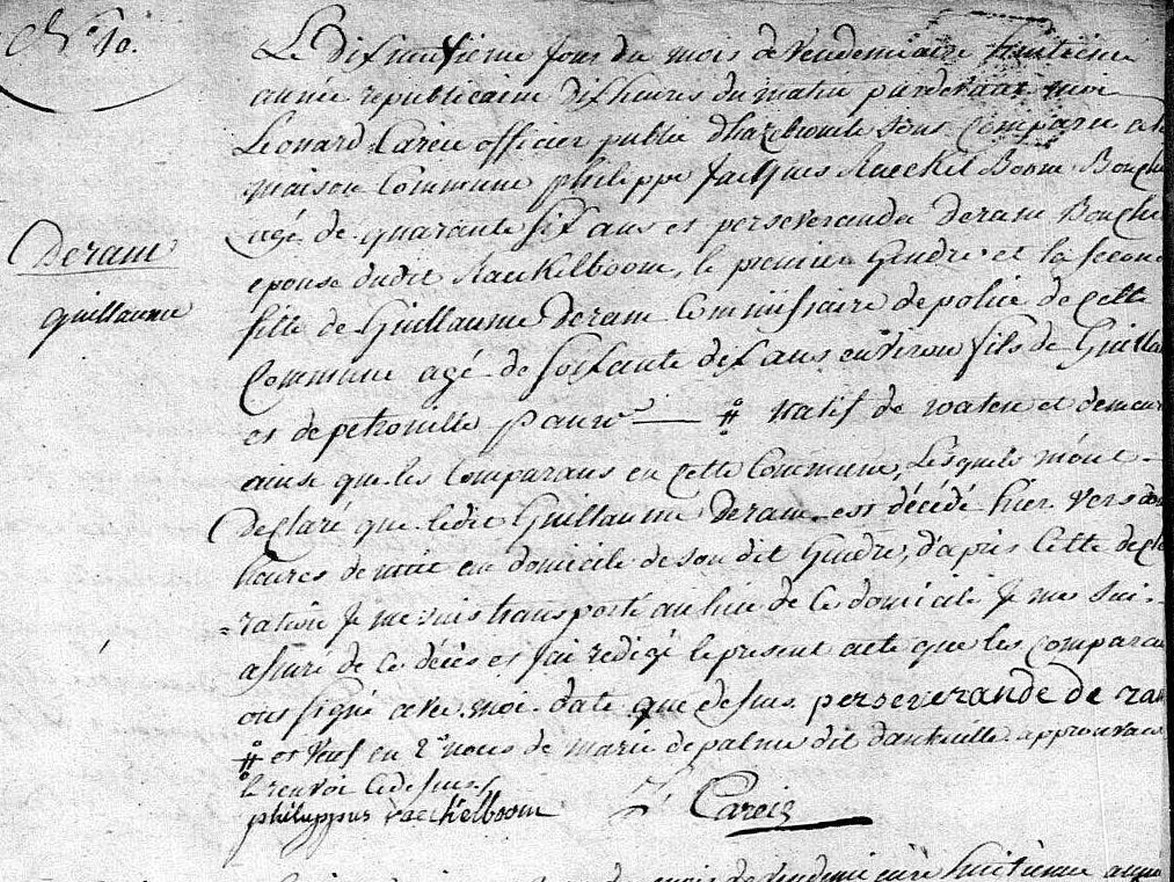 N° 10.
Le dixhuitième jour du mois de Vendemiaire huitieme
année republicaine dix heures du matin pardevant moi
Leonard Careie officier public dhazebrouck sont comparu a la
maison Commune philippe Jacques Raeckelboom Bouch
agé de quarante six ans et perseverande Deram Bouch
epouse dudit Raeckelboom, le premier Gendre et la secon
fille de Guillaume Deram Commissaire de police de cette
Deram
guillaume
Commune agé de soixante dix ans environ fils de Guilla
et de petronille pauw — # natif de waten et demeu
ainsi que les Comparans en cette Commune, Lesquels m'ont
declaré que ledit Guillaume Deram est décédé hier vers
heures de nuit en domicile de son dit Gendre, d'apris cette decla
=ration Je me suis transporté au lieu de ce domicile Je me suis
assuré de ce décès et j'ai redigé le present acte que les comparan
ont signé avec moi date que dessus perseverande de ram
# et veuf en 2es noces de marie depalme dit danteuille approuvan
le renvoi cidessus
philuppus raeckelboom L. Careie
mois de Vendemiaire huitieme anné